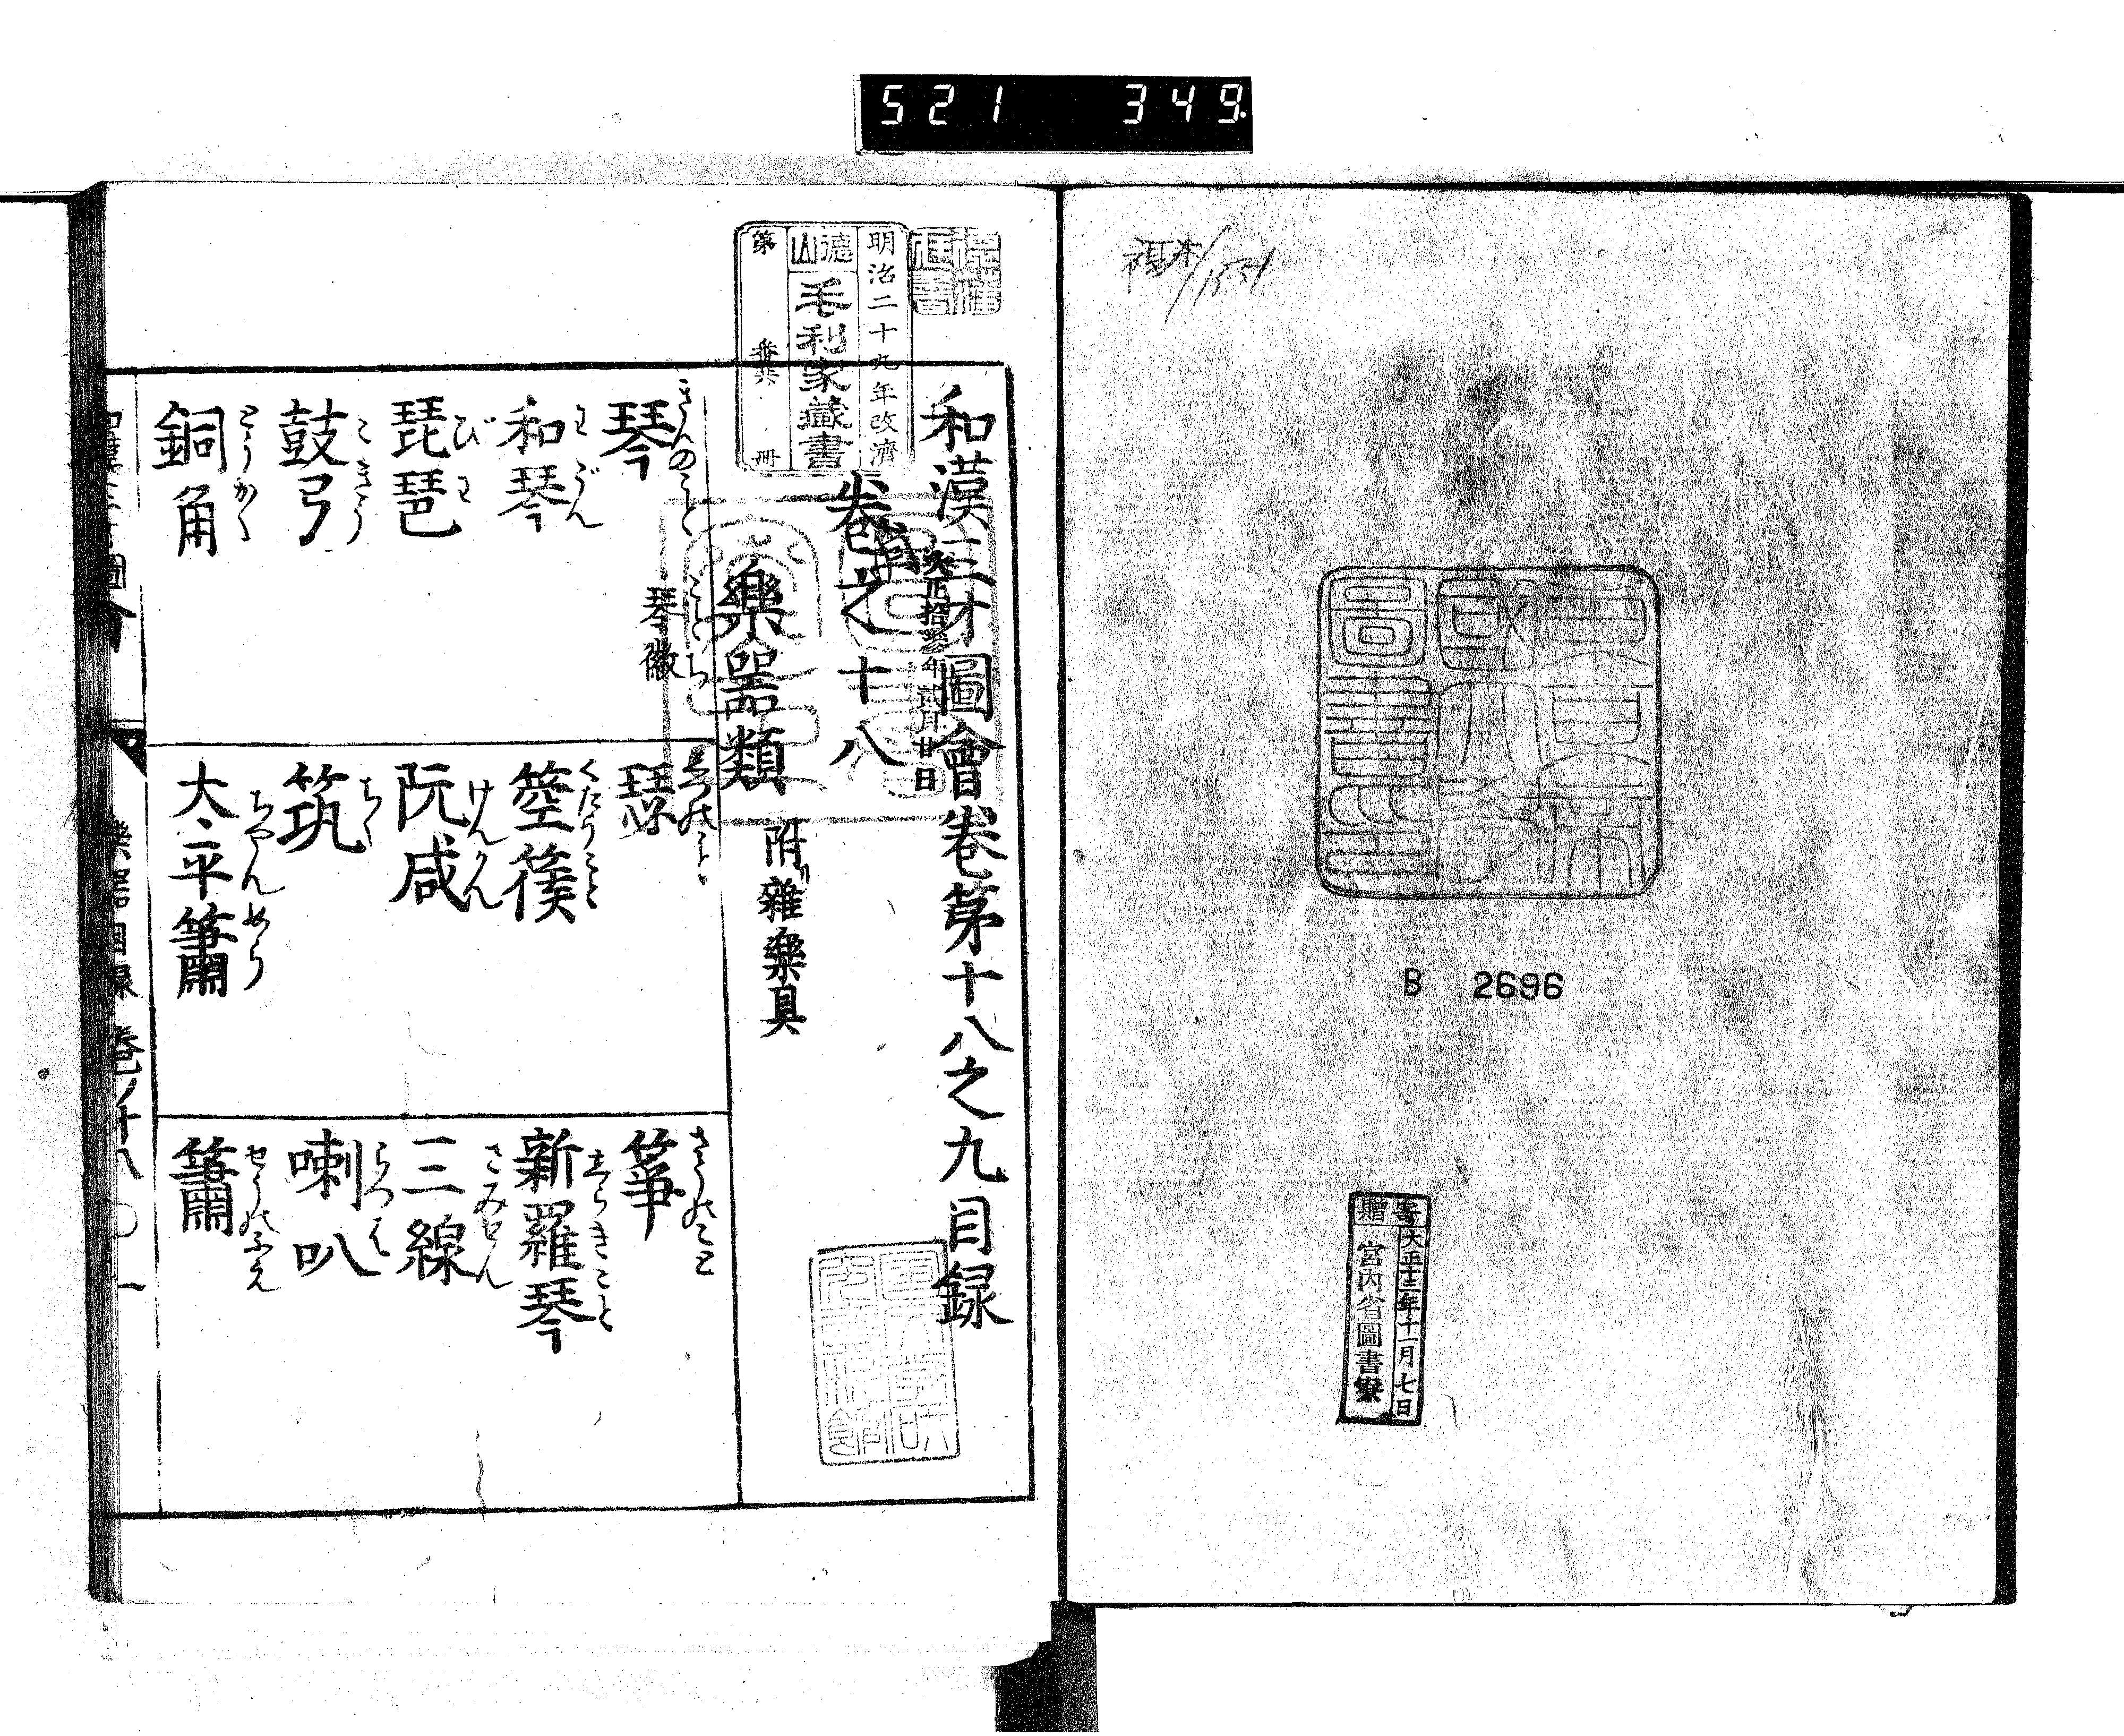 521 349
B 2696
東京帝國大學圖書印
寄贈
大正十三年十一月七日
宮内省圖書寮
明治二十九年改濟
德山
毛利家藏書
第
共
冊
和漢三才圖會卷第十八之九目録
卷之十八
樂器類 附雜樂具
琴 きんのこと
琴徽 ことぢ
瑟 しつのこと
箏 さうのこと
和琴 わごん
箜篌 くだらこと
新羅琴 しらきこと
琵琶 びわ
阮咸 げんかん
三線 さみせん
鼓弓 こきう
筑 ちく
喇叭 らつは
銅角 どうかく
太平簫 ちやんめら
簫 せうのふえ
樂器目録 卷ノ十八 〇 一